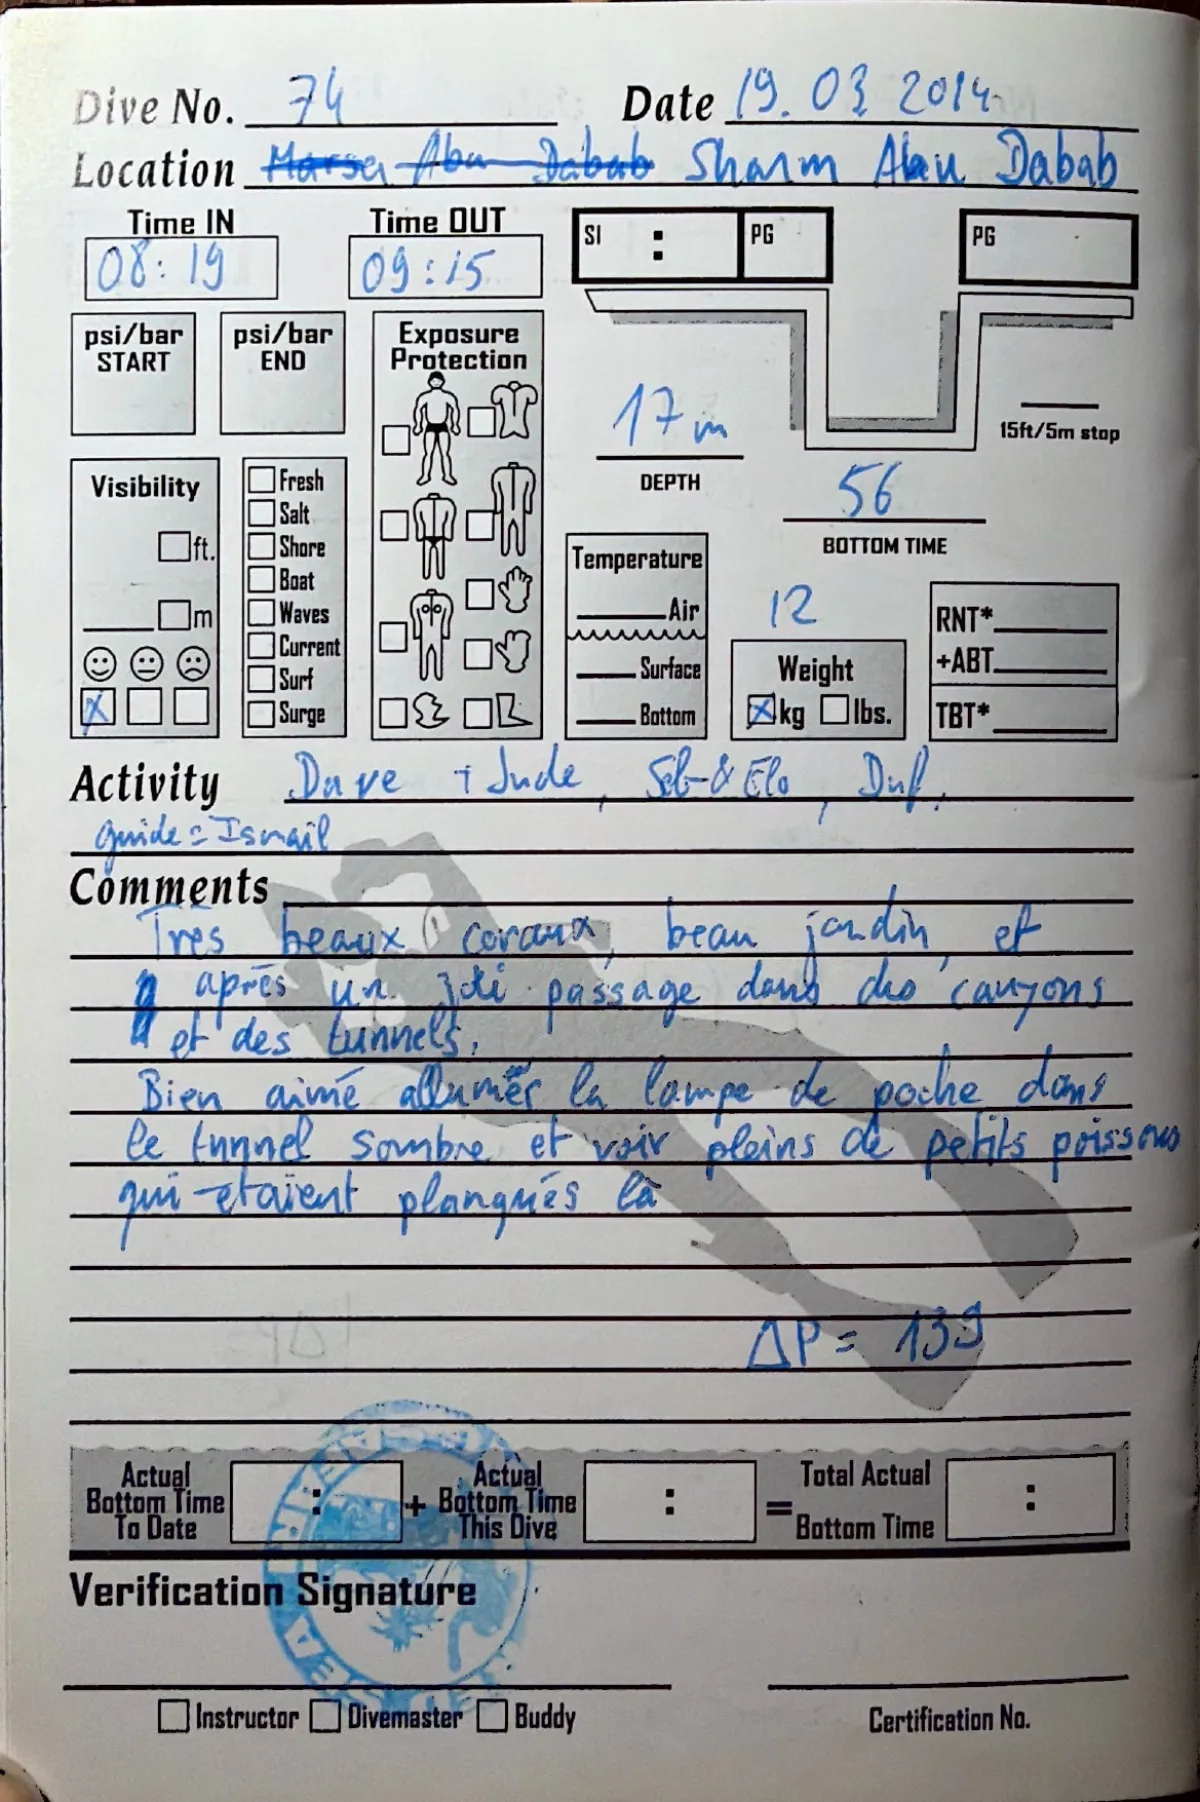 Dive No. 74 Date 19.03 2014
Location Marsa Abu Dabab Sharm Abu Dabab
Time IN Time OUT
08:19 09:15
SI : PG PG
psi/bar START psi/bar END
Exposure Protection
17m
DEPTH
15ft/5m stop
56
BOTTOM TIME
Visibility
ft.
m
x
Fresh
Salt
Shore
Boat
Waves
Current
Surf
Surge
Temperature
Air
Surface
Bottom
12
Weight
x kg lbs.
RNT*
+ABT
TBT*
Activity Dave + Jude, Seb & Elo, Duf.
guide = Ismail
Comments
Très beaux coraux, beau jardin, et
après un joli passage dans des canyons
et des tunnels.
Bien aimé allumer la lampe de poche dans
le tunnel sombre et voir pleins de petits poissons
qui étaient planqués là
ΔP = 139
Actual Bottom Time To Date : + Actual Bottom Time This Dive : = Total Actual Bottom Time :
Verification Signature
Instructor Divemaster Buddy
Certification No.